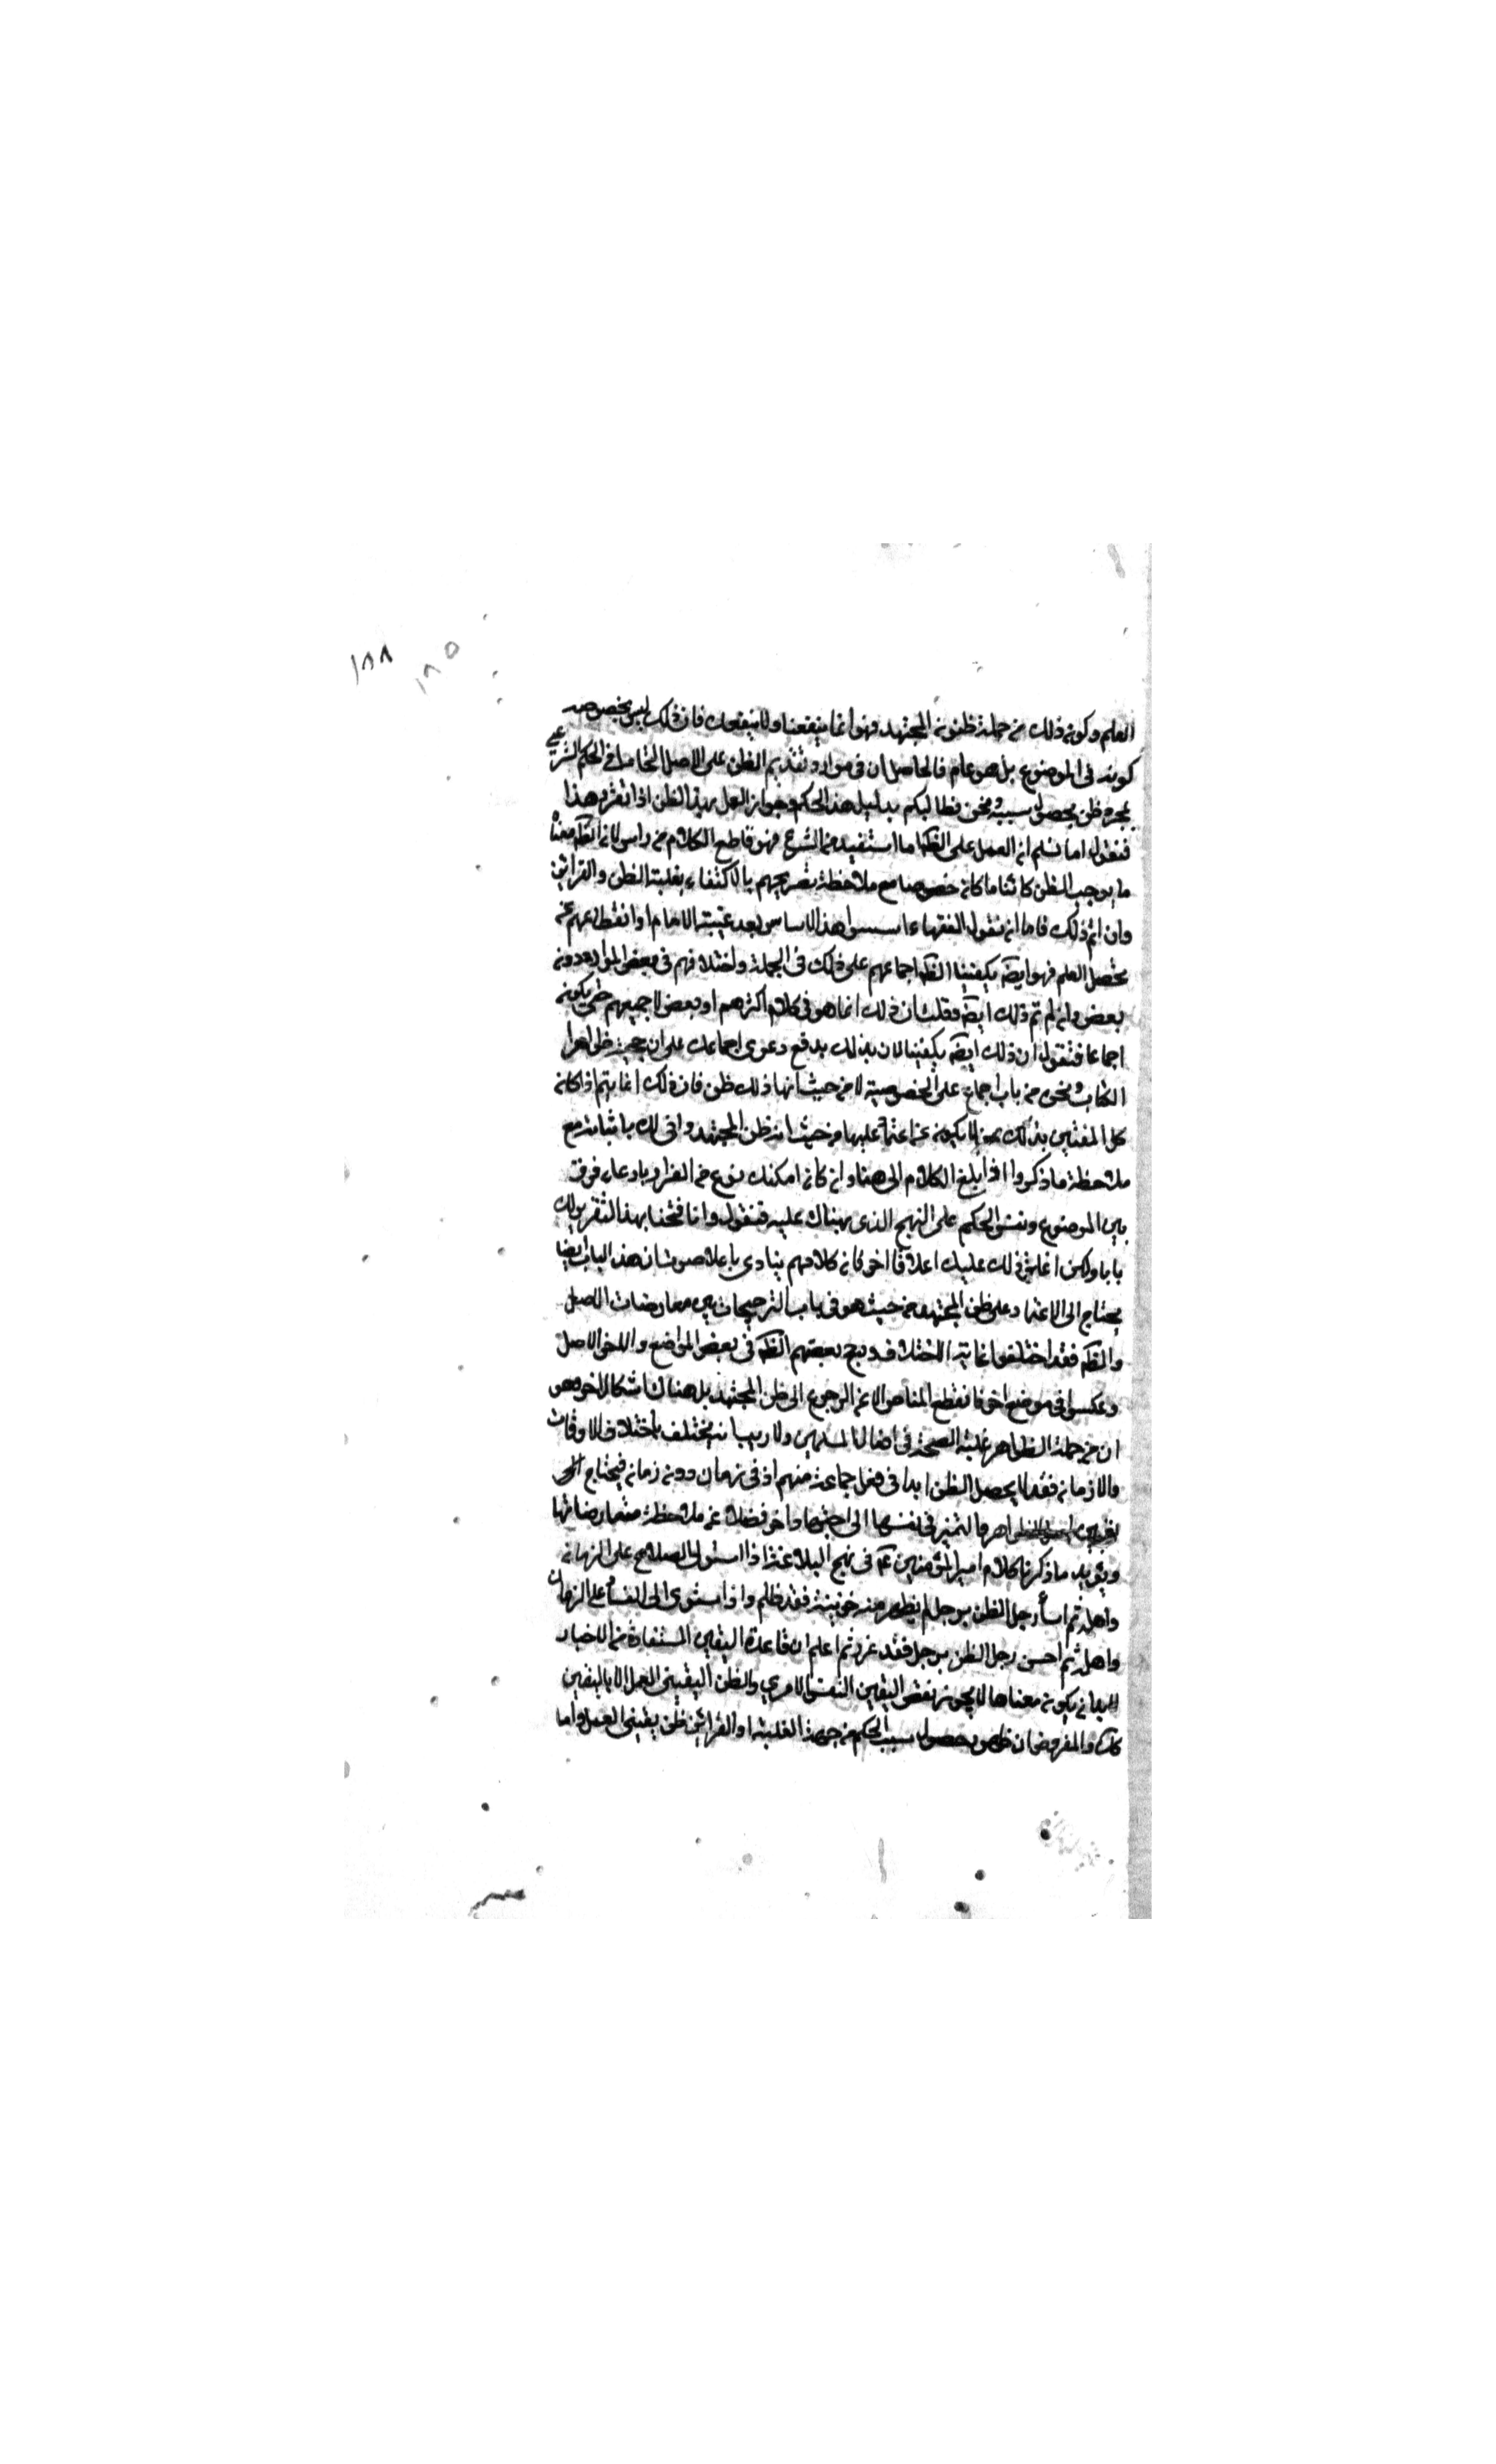 ١٨٨ ١٨٥
العلم وكون ذلك من جملة ظنون المجتهد فهو انما ينفعنا ولا ينفعك فان ذلك ليس بخصوصه
كونه فى الموضوع بل هو عام فالحاصل ان فى موارد تقديم الظن على الاصل التحاصل فى الحكم الشرعى
بمجرد ظن بحصول سببه ونحن نطالبكم بدليل هذا الحكم وجواز العمل بهذا الظن اذا تقرر هذا
فنقول اما نسلم ان العمل على الظ ما استفيد من الشرع فهو قاطع الكلام من راس لان الظ معناه
ما يوجب الظن كائنا ما كان خصوصا مع ملاحظة تصريحهم بالاكتفاء بغلبة الظن والقرائن
وان لم ذلك فاما ان نقول الفقهاء اسسوا هذا الاساس بعد غيبة الامام او انقطاعهم عن
تحصل العلم فهو ايضا يكفينا الظ اجماعهم على ذلك فى الجملة واختلافهم فى بعض الموارد دون
بعض وان لم تم ذلك ايضا وقلت ان ذلك انما هو فى كلام اكثرهم او بعض لا جميعهم حتى يكون
اجماعا فنقول ان ذلك ايضا يكفينا لان بذلك يدفع دعوى اجماعك على ان حجية ظواهر
الكتاب ونحوه من باب اجماع على الخصوصية لا من حيث انها ذلك ظن فان ذلك انما يتم اذا كان
كل المفتين بذلك ممن لا يكون اعتماده عليها من حيث انه ظن المجتهد وانى لك باثباته مع
ملاحظة ما ذكروا اذا بلغ الكلام الى هنا وان كان امكنك نوع من الفرار بادعاء فرق
بين الموضوع ونفس الحكم على النهج الذى نبهناك عليه فنقول وانا فتحنا بهذا التقرير لك
بابا ولكن اغلق ذلك عليك اغلاقا اخر فان كلامهم ينادى باعلا صوت ان هذا الباب ايضا
يحتاج الى الاعتماد على ظن المجتهد من حيث هو فى باب الترجيحات بين معارضات الاصل
والظ فقد اختلفوا غاية الاختلاف فرجح بعضهم الظ فى بعض المواضع والاخر الاصل
وعكسوا فى موضع اخر فانقطع المناص الا عن الرجوع الى ظن المجتهد بل هناك اشكال اخر وهو
ان من جملة الظواهر غلبة الصحة فى افعال المسلمين ولا ريب انه يختلف باختلاف الاوقات
والازمان فقد لا يحصل الظن ابدا فى فعل جماعة منهم او فى زمان دون زمان فيحتاج الى
الظواهر والتميز فى نفسها الى اجتهاد اخر فضلا عن ملاحظة معارضاتها
ويؤيد ما ذكرنا كلام امير المؤمنين ع فى نهج البلاغة اذا استولى الصلاح على الزمان
واهله ثم اساء رجل الظن برجل لم يظهر منه خزية فقد ظلم واذا استولى الفساد على الزمان
واهله ثم احسن رجل الظن برجل فقد غرر ثم اعلم ان قاعدة اليقين المستفادة من الاخبار
اما ان يكون معناها لا يجوز نقض اليقين النفس الامرى والظن اليقينى العمل الا باليقين
كك والمفروض ان ظن حصول سبب الحكم من جهة الغلبة او القرائن ظن يقينى العمل واما